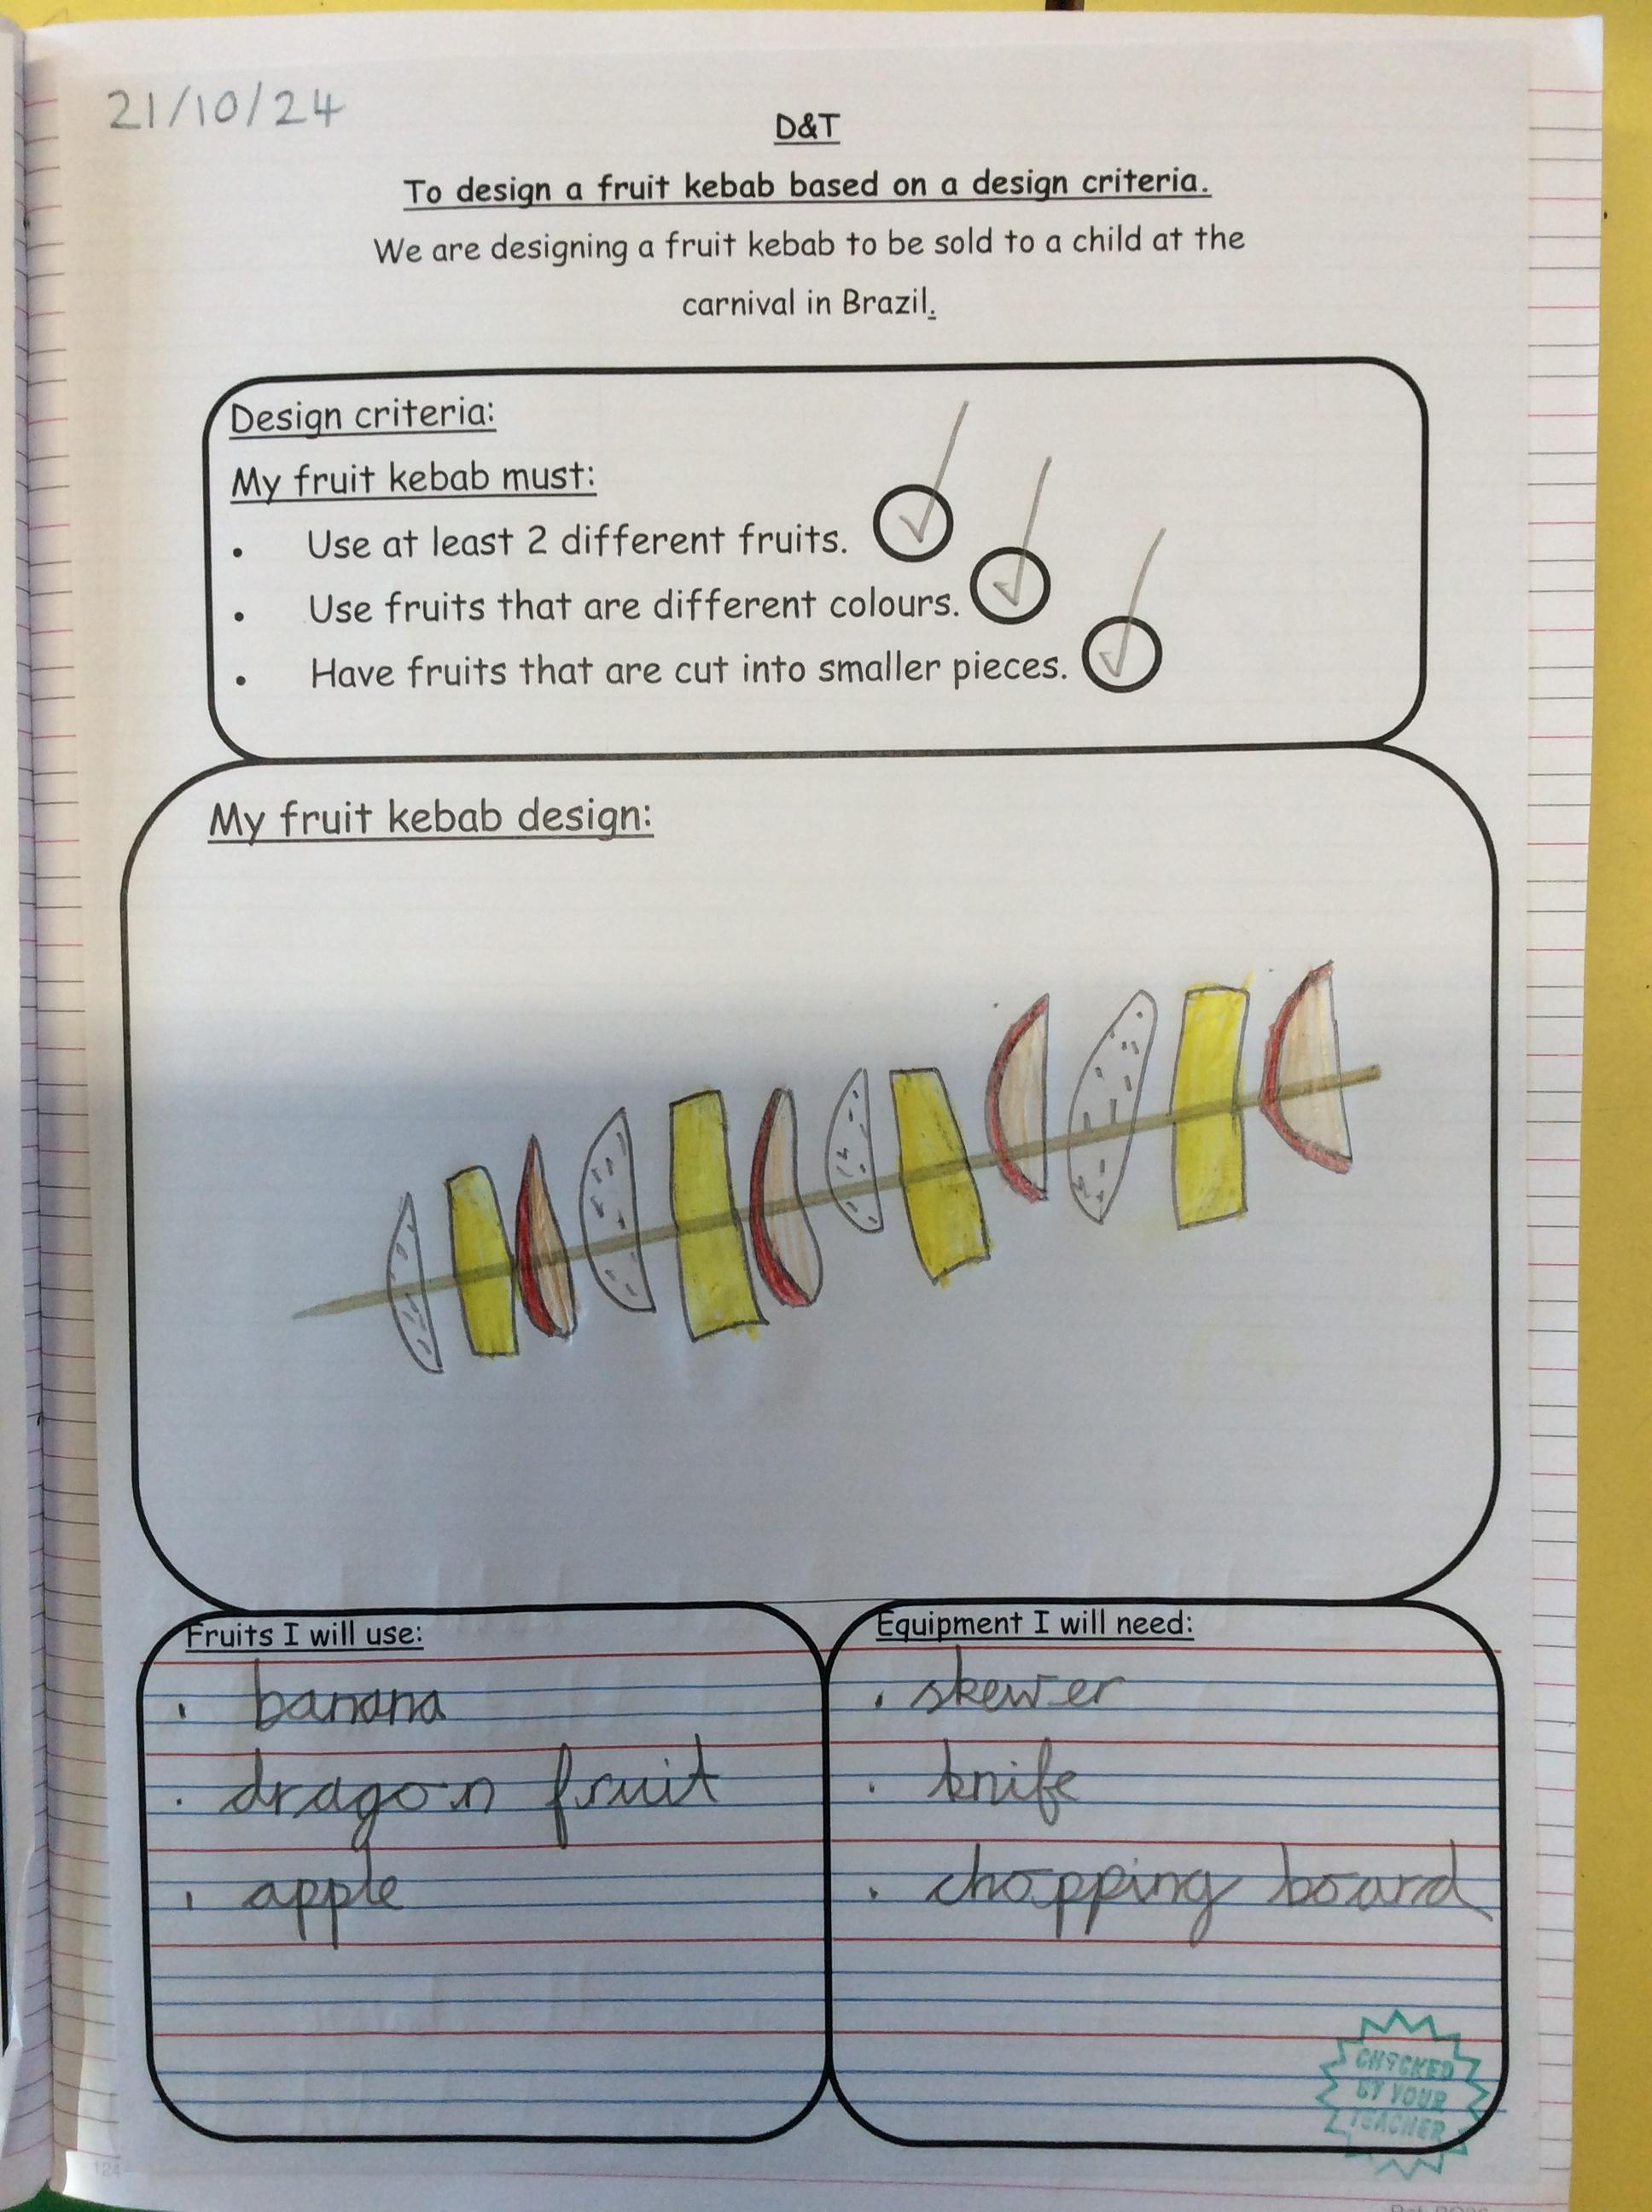 21/10/24
D&T
To design a fruit kebab based on a design criteria.
We are designing a fruit kebab to be sold to a child at the
carnival in Brazil.
Design criteria:
My fruit kebab must:
• Use at least 2 different fruits.
• Use fruits that are different colours.
• Have fruits that are cut into smaller pieces.
My fruit kebab design:
Fruits I will use:
• banana
• dragon fruit
• apple
Equipment I will need:
• skewer
• knife
• chopping board
CHECKED
BY YOUR
TEACHER
124